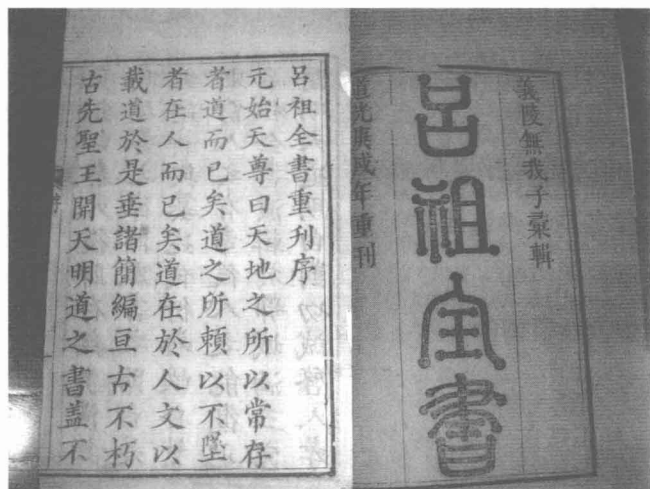 義陵無我子彙輯
呂祖全書
道光庚戌年重刊
呂祖全書重刊序
元始天尊曰天地之所以常存
者道而已矣道之所頼以不墜
者在人而已矣道在於人文以
載道於是垂諸簡編亘古不朽
古先聖王開天明道之書蓋不